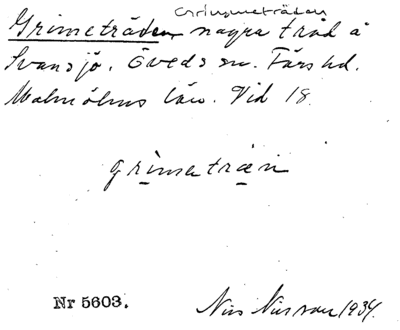 Grimeträden
Grimeträden några träd å
Svansjö. Öveds sn. Färs hd.
Malmöhus län. Vid 18.
grimaträn
Nr 5603.
Nils Nilsson 1934.